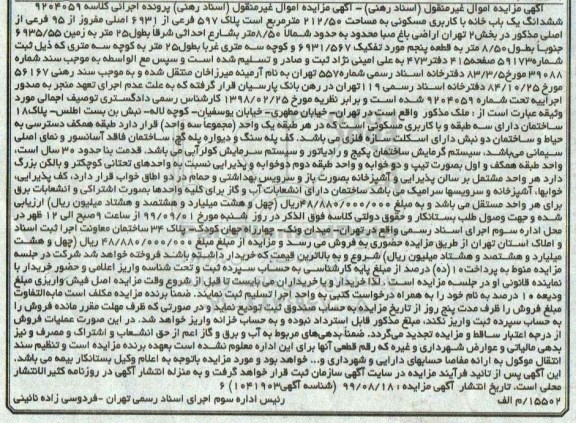 آگهی مزایده اموال غیرمنقول (اسناد رهنی) - آگهی مزایده اموال غیرمنقول (اسناد رهنی) پرونده اجرائی کلاسه ۹۲۰۴۰۵۹
ششدانگ یک باب خانه با کاربری مسکونی به مساحت ۲۱۲/۵۰ مترمربع است پلاک ۵۹۷ فرعی از ۶۹۳۱ اصلی مفروز از ۹۵ فرعی از
اصلی مذکور در بخش۲ تهران اراضی باغ صبا محدود به حدود شمالا ۸/۵۰متر بشارع احداثی شرقا بطول۲۵ متر به زمین ۶۹۳۵/۵۵
جنوبا بطول ۸/۵۰ متر به قطعه پنجم مورد تفکیک ۶۹۳۱/۵۶۷ و کوچه سه متری غربا بطول۲۵ متر به کوچه سه متری که ذیل ثبت
۵۹۱۷۳ صفحه۴۱۵ دفتر۴۷۳ به علی امینی نژاد ثبت و صادر و تسلیم شده است و سپس مع الواسطه به موجب سند شماره
۳۹۰۸۸ مورخ ۸۳/۳/۵ دفترخانه اسناد رسمی شماره۵۵۷ تهران به نام آرمینه میرزاخان منتقل شده و به موجب سند رهنی ۵۶۱۶۷
مورخ ۸۴/۱۰/۲۵ دفترخانه اسناد رسمی ۱۱۹ تهران در رهن بانک پارسیان قرار گرفته که به علت عدم اجرای تعهد منجر به صدور
اجراییه تحت شماره ۹۲۰۴۰۵۹ شده است و برابر نظریه مورخ ۱۳۹۸/۰۲/۲۵ کارشناس رسمی دادگستری توصیف اجمالی مورد
وثیقه عبارت است از : ملک مذکور واقع است در تهران- خیابان مطهری- خیابان یوسفیان- کوچه لاله- نبش بن بست اطلس- پلاک۱۸
ساختمان دارای سه طبقه و با کاربری مسکونی است که در هر طبقه یک واحد (مجموعا سه واحد) قرار دارد طبقه همکف دسترسی به
حیاط و ساختمان دو نبش دارای اسکلت سازه فلزی می باشد. کف پله سنگ و دیواره پله گچ، ساختمان فاقد آسانسور و نمای اصلی
سیمانی می باشد. سیستم گرمایش ساختمان پکیج و رادیاتور و سیستم سرمایش کولر آبی می باشد. قدمت بنا حدود ۳۰ سال است،
واحد طبقه همکف و اول بصورت تیپ و دوخوابه و واحد طبقه دوم دوخوابه و پذیرایی نسبت به واحدهای تحتانی کوچکتر و بالکن بزرگ
دارد هر واحد مشتمل بر سالن پذیرایی و آشپزخانه بصورت باز و سرویس بهداشتی و حمام در دو اطاق خواب قرار دارد، کف پذیرایی،
خوابها، آشپزخانه و سرویسها سرامیک می باشد ساختمان دارای انشعابات آب و گاز برای کلیه واحدها بصورت اشتراکی و انشعابات برق
برای هر واحد مستقل می باشد و به مبلغ ۴۸/۸۸۰/۰۰۰/۰۰۰ریال (چهل و هشت میلیارد و هشتصد و هشتاد میلیون ریال) ارزیابی
شده و جهت وصول طلب بستانکار و حقوق دولتی کلاسه فوق الذکر در روز شنبه مورخ ۹۹/۰۹/۰۱ از ساعت ۹صبح الی ۱۲ ظهر در
محل اداره سوم اجرای اسناد رسمی واقع در تهران- میدان ونک- چهارراه جهان کودک- پلاک ۳۴ ساختمان معاونت اجرا ثبت اسناد
و املاک استان تهران از طریق مزایده حضوری به فروش می رسد و مزایده از مبلغ مبلغ ۴۸/۸۸۰/۰۰۰/۰۰۰ ریال (چهل و هشت
میلیارد و هشتصد و هشتاد میلیون ریال) شروع و به بالاترین قیمت که خریدار داشته باشد فروخته خواهد شد شرکت در جلسه
مزایده منوط به پرداخت۱۰(ده) درصد از مبلغ پایه کارشناسی به حساب سپرده ثبت و تحت شناسه واریز اعلامی و حضور خریدار یا
نماینده قانونی او در جلسه مزایده است. لذا خریدار و یا خریداران می بایست تا قبل از شروع وقت مزایده اصل فیش واریزی مبلغ
ودیعه ۱۰ درصد به نام خود را به همراه درخواست کتبی به واحد اجرا تسلیم ثبت نمایند. ضمناً برنده مزایده مکلف است مابه التفاوت
مبلغ فروش را ظرف مدت پنج روز از تاریخ مزایده به حساب صندوق ثبت تودیع نماید و در صورتی که ظرف مهلت مقرر مانده فروش را
به حساب سپرده ثبت واریز نکند، مبلغ مذکور قابل استرداد نبوده و به حساب خزانه واریز خواهد شد. در این صورت عملیات فروش
از درجه اعتبار ساقط و مزایده تجدید می گردد. ضمناً بدهی های مربوط به آب و برق و گاز اعم از حق انشعاب و اشتراک و مصرف و نیز
بدهی مالیاتی و عوارض شهرداری و غیره که رقم قطعی آنها برای این اداره معلوم نشده است بعهده برنده مزایده است و تنظیم سند
انتقال موکول به ارائه مفاصا حسابهای دارایی و شهرداری و... خواهد بود و مورد مزایده باتوجه به اعلام وکیل بستانکار بیمه می باشد.
این آگهی پس از تائید فرآیند مزایده در سایت آگهی سازمان ثبت قرار گرفت و به منزله انتشار آگهی در روزنامه کثیرالانتشار
محلی است. تاریخ انتشار آگهی مزایده : ۹۹/۰۸/۱۸ (شناسه آگهی۱۰۴۱۹۰۳) ۶
۱۵۵۰۲/م الف رئیس اداره سوم اجرای اسناد رسمی تهران -فردوسی زاده نائینی